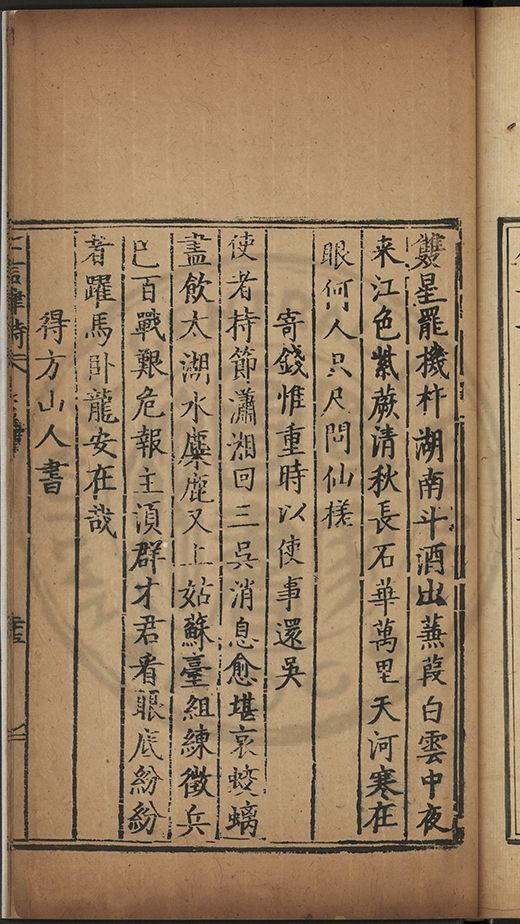 雙星罷機杼湖南斗酒出蒹葭白雲中夜
来江色紫蕨清秋長石華萬里天河寒在
眼何人只尺問仙槎
寄錢惟重時以使事還吳
使者持節瀟湘回三吳消息愈堪哀蛟螭
盡飲太湖水麋鹿又上姑蘇臺組練徵兵
巳百戰艱危報主湏群才君看眼底紛紛
者躍馬卧龍安在哉
得方山人書